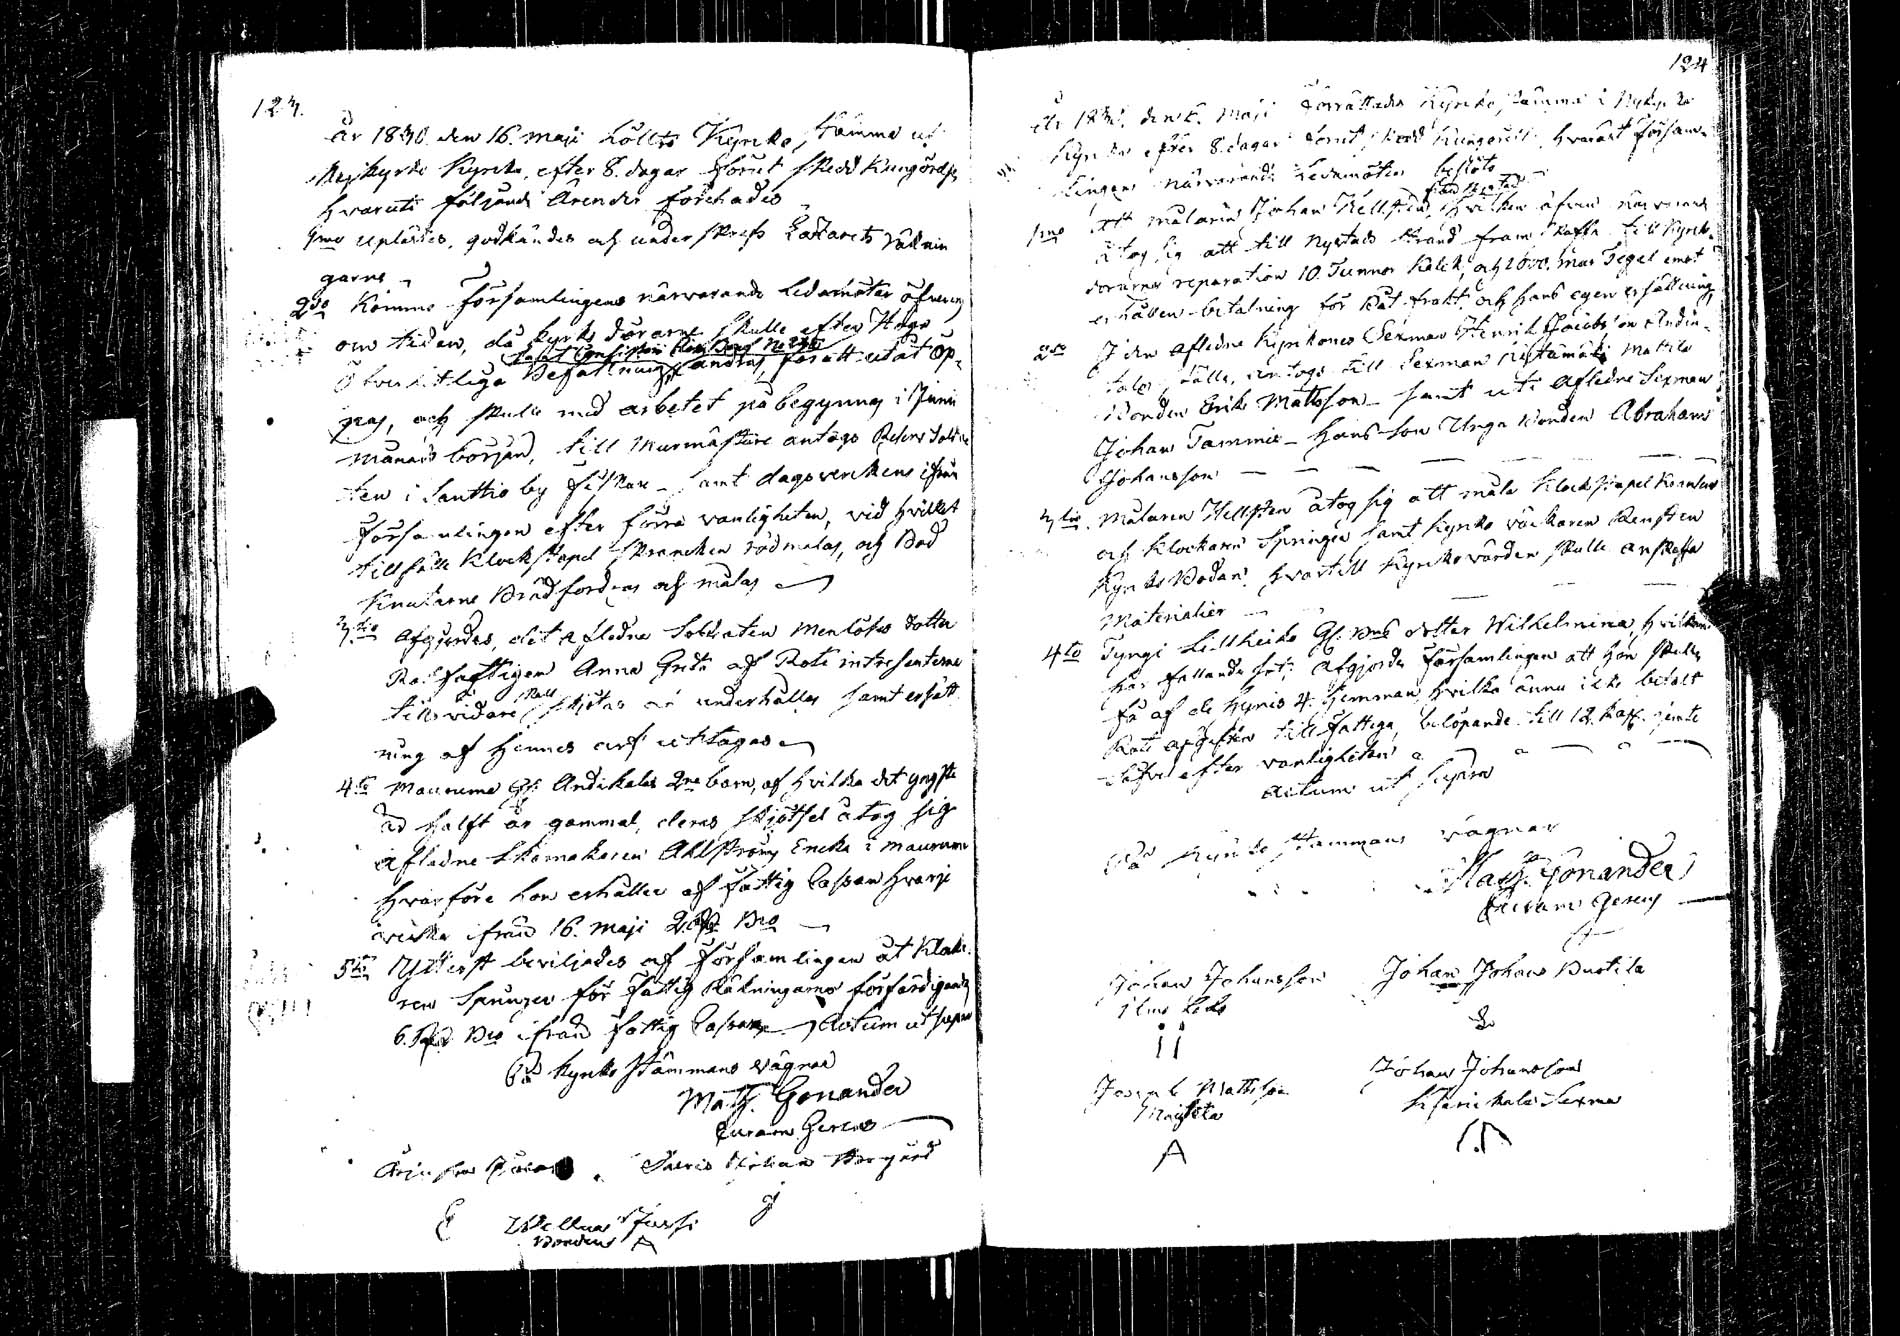 123.
År 1830. den 16. Maji hölts Kyrko stämma uti
Nykyrko Kyrka, efter 8. dagar förut skedd Kungörelse
hvaruti följande Ärender förehades
1mo uplästes, godkändes och underskrefs Räknin
garne
2do Komme församlingens närvarande Ledamöter öfverens
om tiden, då kyrko dörarne skulle efter Höga
Öfverhetliga Befallning ändras, för att utåt öp-
pnas, och skulle med arbetet på begynnas i Junii
månads början, till Murmästare antogs
ten i Santtio by samt dagsverckens ifrån
Församlingen efter förra vanligheten, vid hvilket
tillfälle Klockstapel skrancken rödmålas, och Bod
Knutarne Brädfordras och målas
3tio Afgjordes, det aflidne Soldaten Menlös dotter
Rotfattigen Anna Greta af Rote intressenterne
tils vidare skall skjötas och underhållas samt ersätt
ning af hennes arf uttagas
4to Maurumo Andikalas 2ne barn, af hvilka det yngste
är halft år gammal, deras skjötsel åtog sig
aflidne Skomakaren Ahlströms Encka i Maurumo
hvarföre hon erhåller af fattig Cassan hvarje
vecka ifrån 16. Maji 2. Bco
5to Ytterst beviljades af församlingen åt Klocka
ren Springer för fattig Räkningarnes författigande
6. Bco ifrån fattig Cassan Actum ut supra
På Kyrko Stämmans vägnar
Math. Gonander
Curam Gerens
Johan
Jussi
Bonden

124
År 1830. den Maji Förrättades Kyrko stämma i Nykyrko
Kyrka efter 8. dagar förut skedd Kungörelse, hvaräst församl
lingens närvarande Ledamöter beslöto
från Nystad
1mo att målaren Johan Hellsten, hvilken äfven närvarande
åtog sig att till Nystads strand fram skaffa till Kyrko
dörarnes reparation 10. Tunnor Kalck, och mur Tegel emot
erhållen betalning för Båt frakt, och hans egen ersättning
2do I den aflidne Kyrkones Sexman Henrik Jacobsson Andin-
talos ställe, antogs till Sexman Mattila
Bonden Erik Mattsson samt uti aflidne Sexman
Johan Tammis hans son Unga Bonden Abraham
Johansson
3tio Målaren Hellsten åtog sig att måla Klockstapel Knutar
och Klockaren Springer samt Kyrko väcktaren Rensten
Kyrko Bodar, hvartill Kyrkovärden skulle anskaffa
Materialier
4to Tyngi Littheiko dotter Wilhelmina, hvilken
har fallande sot; afgjorde församlingen att hon skulle
få af de Hynis 4. Hemman, hvilka ännu icke betalt
Rote afgiften till fattiga, belöpande till 12. Kapp. jemte
efter vanligheten
Actum ut supra
På Kyrko Stämmans vägnar
Math. Gonander
Curam Gerens
Johan Johansson
Johan Johans Buctila
Jacob Mattsson
Johan Johansson
Sexman